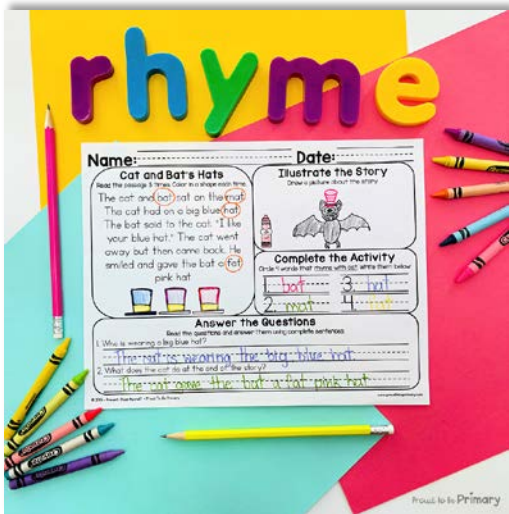 rhyme
Name: Date:
Cat and Bat's Hats
Read the passage 3 times. Color in a shape each time.
The cat and bat sat on the mat.
The cat had on a big blue hat.
The bat said to the cat, "I like
your blue hat." The cat went
away but then came back. He
smiled and gave the bat a fat
pink hat.
Illustrate the Story
Draw a picture about the story.
Complete the Activity
Circle 4 words that rhyme with cat. Write them below.
1. bat
3. hat
2. mat
4. fat
Answer the Questions
Read the questions and answer them using complete sentences.
1. Who is wearing a big blue hat?
The cat is wearing the big blue hat.
2. What does the cat do at the end of the story?
The cat gave the bat a fat pink hat.
Proud to be Primary